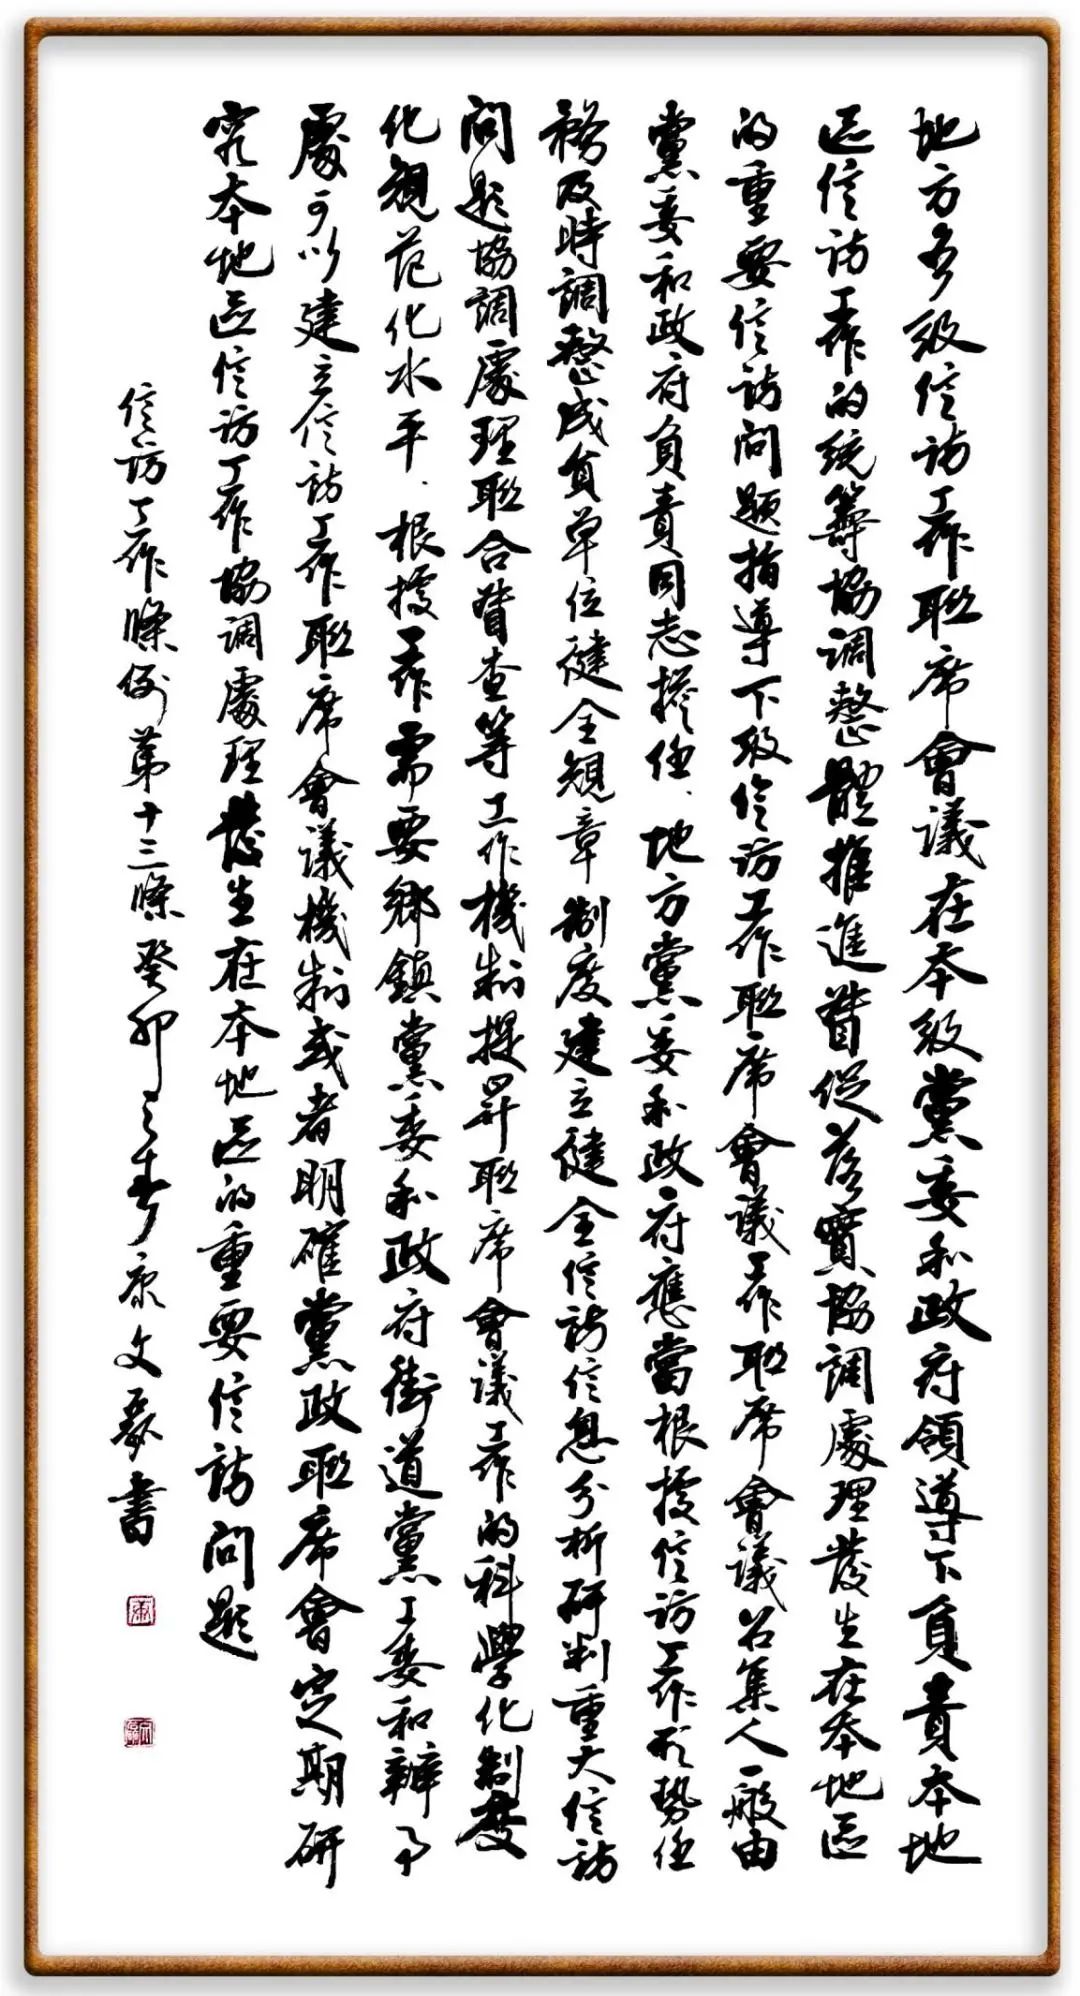 地方各級信訪工作聯席會議在本級黨委和政府領導下負責本地
區信訪工作的統籌協調整體推進督促落實協調處理發生在本地區
的重要信訪問題指導下級信訪工作聯席會議工作聯席會議召集人一般由
黨委和政府負責同志擔任、地方黨委和政府應當根據信訪工作形勢任
務及時調整成員單位健全規章制度建立健全信訪信息分析研判重大信訪
問題協調處理聯合督查等工作機制提昇聯席會議工作的科學化制度
化規范化水平、根據工作需要鄉鎮黨委和政府街道黨工委和辦事
處可以建立信訪工作聯席會議機制或者明確黨政聯席會定期研
究本地區信訪工作協調處理發生在本地區的重要信訪問題
信訪工作條例第十三條癸卯之春康文 書